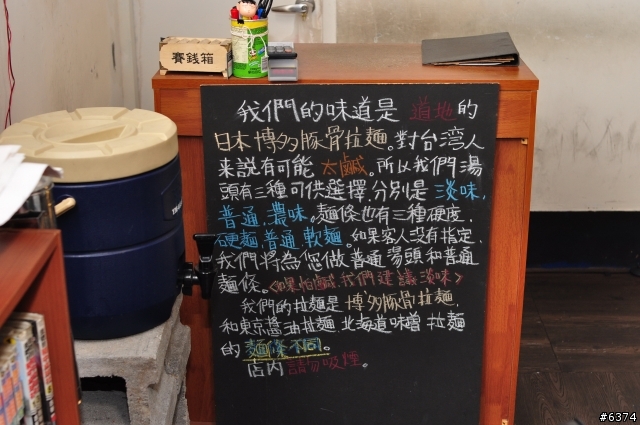 賽錢箱
我們的味道是 道地的
日本博多豚骨拉麵。對台湾人
来説有可能 太鹹。所以我們湯
頭有三種可供選擇,分別是 淡味,
普通,濃味。麵條也有三種硬度,
硬麵,普通,軟麵。如果客人沒有指定,
我們將為您做普通湯頭和普通
麵條。<如果怕鹹,我們建議淡味>
我們的拉麵是 博多豚骨拉麵,
和東京醬油拉麵,北海道味噌 拉麵
的 麵條不同。
店内 請勿吸煙。
#6374